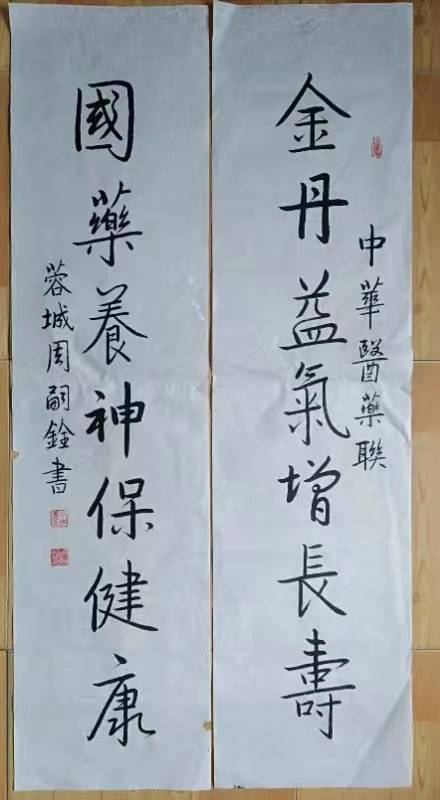 中華醫藥聯
金丹益氣增長壽
國藥養神保健康
蓉城周嗣銓書